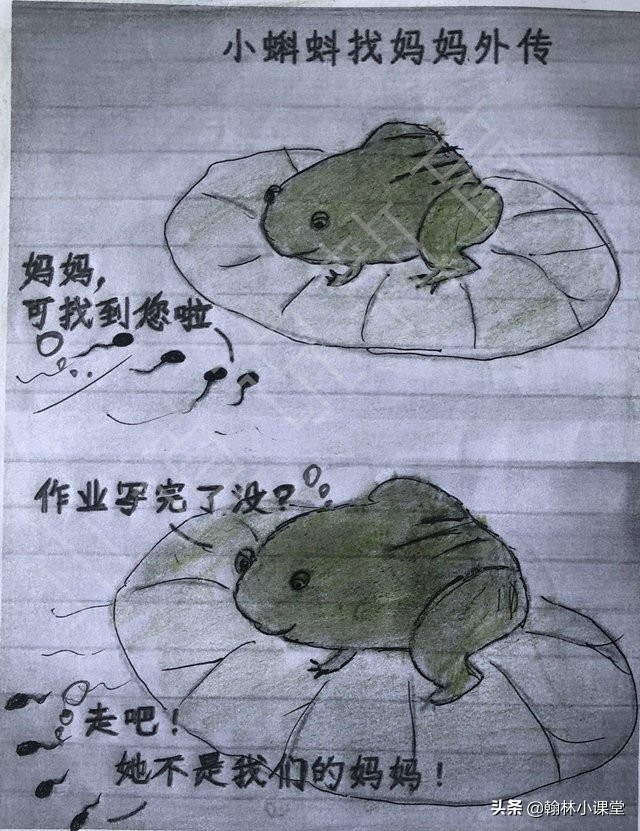 小蝌蚪找妈妈外传
妈妈,
可找到您啦
作业写完了没?
走吧!
她不是我们的妈妈!
头条 @翰林小课堂